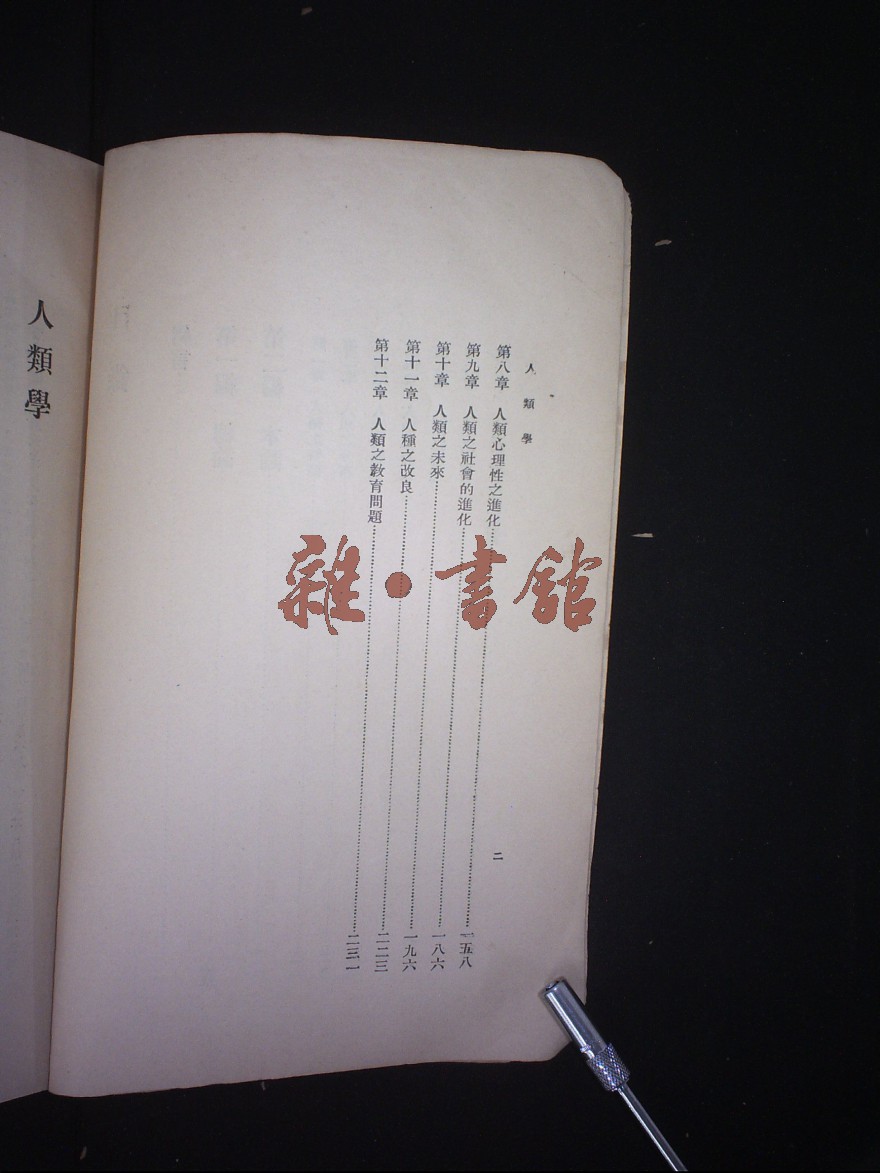 人類學
二
第八章 人類心理性之進化……一五八
第九章 人類之社會的進化……一八六
第十章 人類之未來……一九六
第十一章 人種之改良……二二三
第十二章 人類之教育問題……二三一
人類學
雜·書館